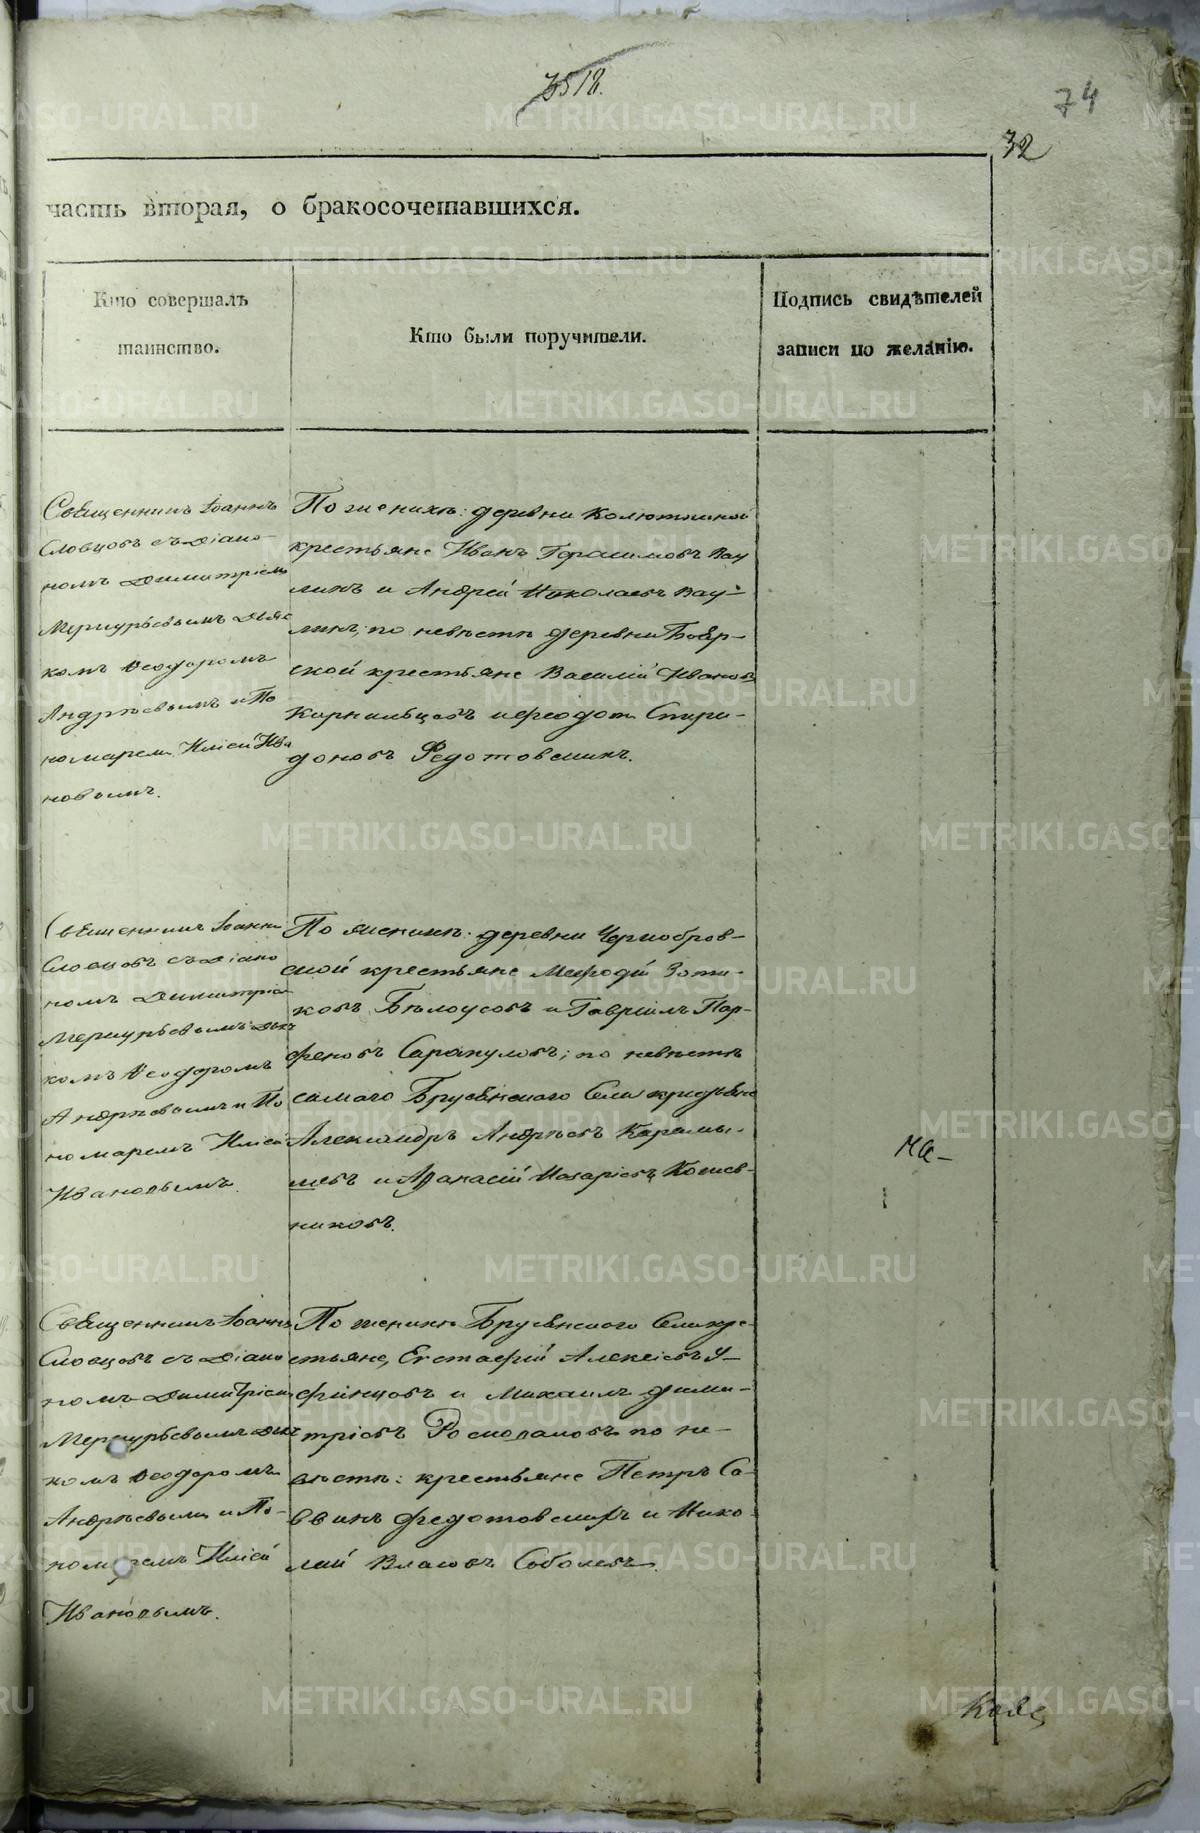 3518.
74
32
часть вторая, о бракосочетавшихся.
Кто совершалъ
таинство.
Кто были поручители.
Подпись свидѣтелей
записи по желанію.
Священникъ Іоаннъ
Словцовъ съ Діако-
номъ Димитріемъ
Меркурьевымъ Дьяч
комъ Ѳеодоромъ
Андрѣевымъ и По
номаремъ Иліей Ива
новымъ.
По женихѣ: деревни Колюткиной
крестьяне Иванъ Герасимовъ Вау
линъ и Андрей Николаевъ Вау-
линъ; по невѣстѣ деревни Бояр-
ской крестьяне Василій Ивановъ
Корнильцовъ и Ѳеодотъ Спири-
доновъ Федотовскихъ.
Священникъ Іоаннъ
Словцовъ съ Діако
номъ Димитріемъ
Меркурьевымъ Дьяч
комъ Ѳеодоромъ
Андрѣевымъ и По
номаремъ Иліей
Ивановымъ.
По женихѣ: деревни Чернобров-
ской крестьяне Меѳодій Зоти-
ковъ Бѣлоусовъ и Гавріилъ Пар-
феновъ Сарапуловъ; по невѣстѣ
самаго Бруснянскаго Села крестьяне
Александръ Андрѣевъ Карамы-
шевъ и Афанасій Макаріевъ
никовъ.
Священникъ Іоаннъ
Словцовъ съ Діако
номъ Димитріемъ
Меркурьевымъ Дьяч
комъ Ѳеодоромъ
Андрѣевымъ и По-
номаремъ Иліей
Ивановымъ.
По женихѣ Бруснянскаго Села кре-
стьяне, Евстафій Алексіевъ У-
финцовъ и Михаилъ Дими-
тріевъ по не-
вѣстѣ: крестьяне Петръ Са-
ввинъ Федотовскихъ и Нико-
лай Власовъ Соболевъ.
METRIKI.GASO-URAL.RU